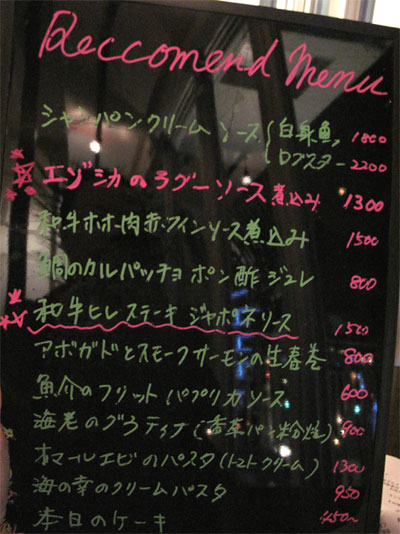 Reccomend Menu
シャンパンクリームソース 白身魚 1800
ロブスター 2200
エゾシカのラグーソース煮込み 1300
和牛ホホ肉赤ワインソース煮込み 1500
鯛のカルパッチョ ポン酢ジュレ 800
和牛ヒレステーキ ジャポネソース 1500
アボガドとスモークサーモンの生春巻 800
魚介のフリット パプリカソース 600
海老のグラティナ(香草パン粉焼) 900
オマールエビのパスタ(トマトクリーム) 1300
海の幸のクリームパスタ 950
本日のケーキ 450~